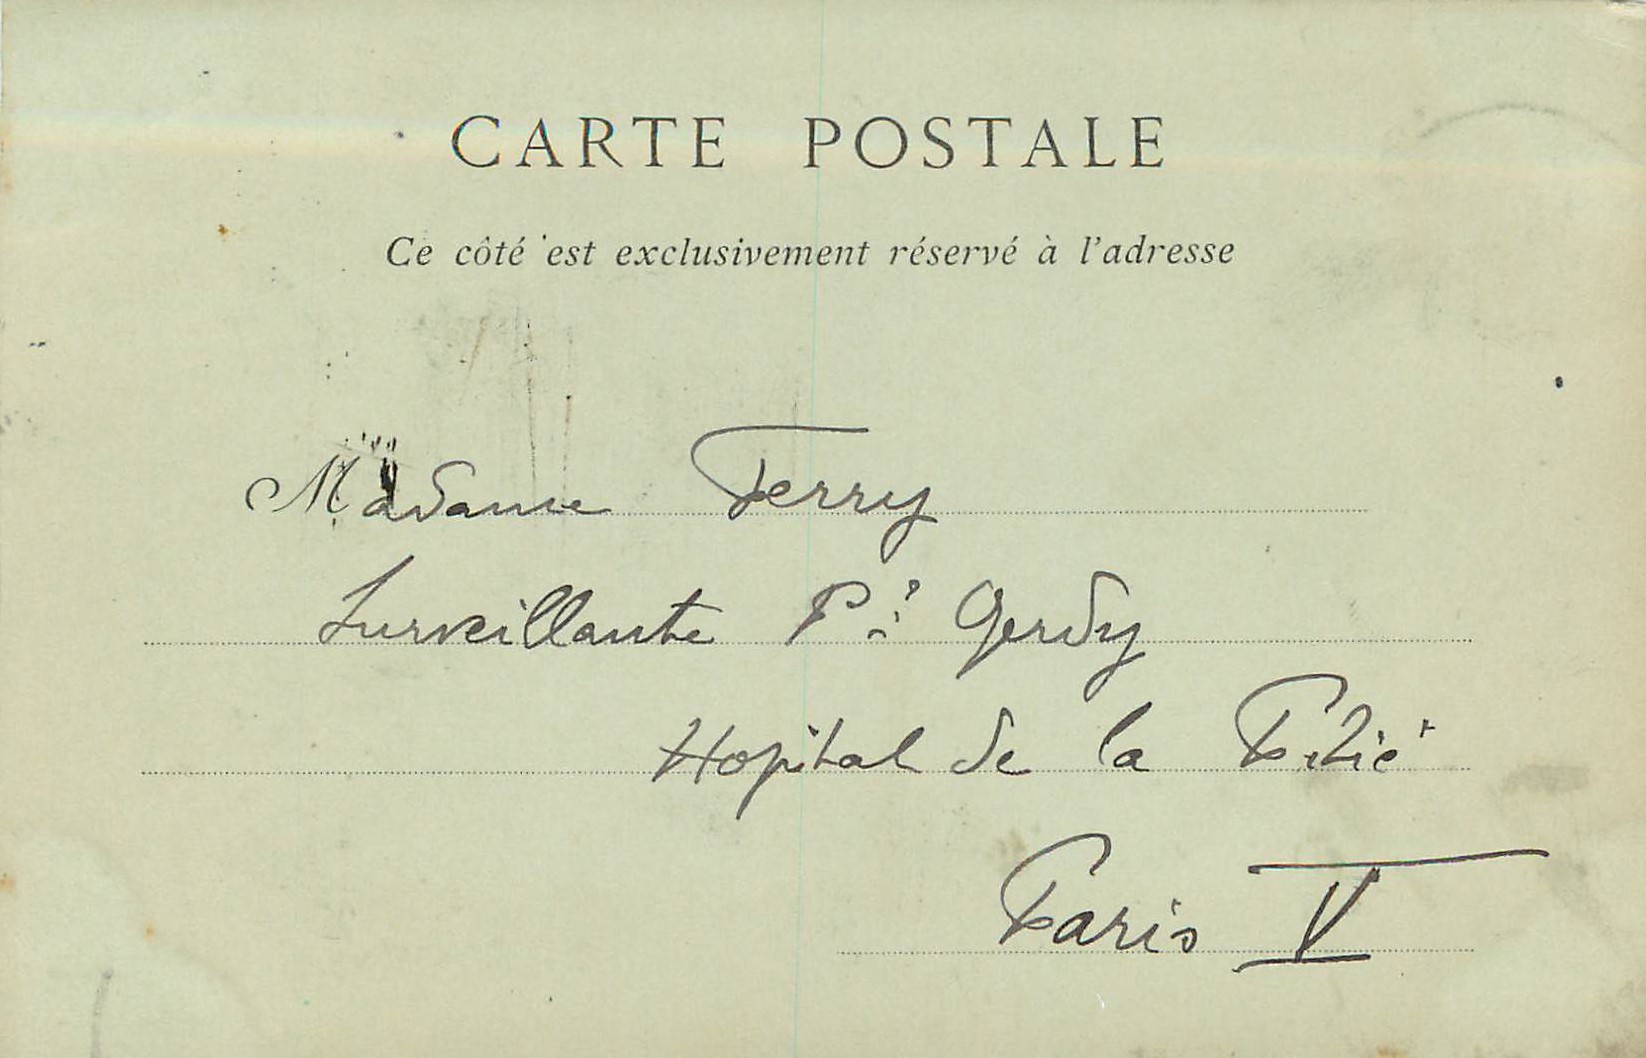 CARTE POSTALE
Ce côté est exclusivement réservé à l'adresse
Madame Ferry
Surveillante Gerdy
Hopital de la Pitié
Paris V